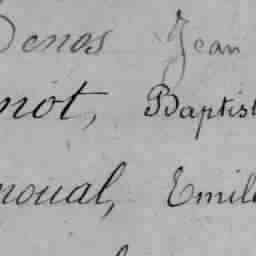 Denos Jean
not, Baptist
noual, Emile